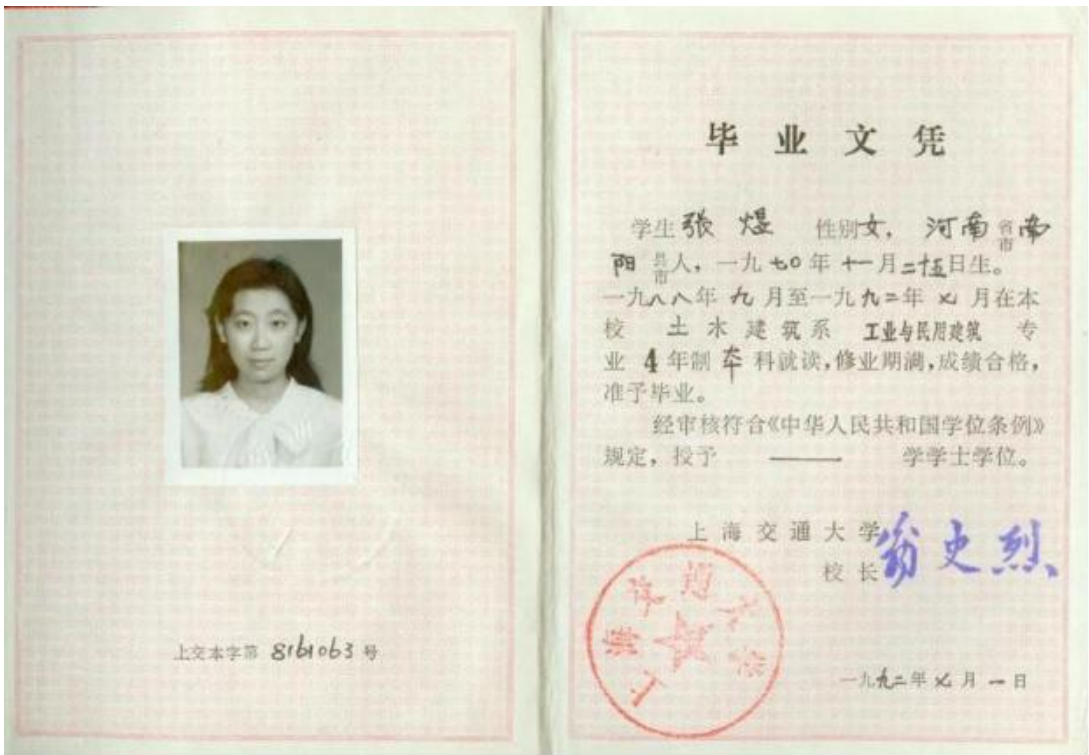 上交本字第 8161063 号
毕业文凭
学生 张煜 性别 女， 河南 省市 南
阳 县市 人，一九七〇年十一月二十五日生。
一九八八年九月至一九九二年七月在本
校 土木建筑系 工业与民用建筑 专
业 4 年制 本 科就读，修业期满，成绩合格，
准予毕业。
经审核符合《中华人民共和国学位条例》
规定，授予 —— 学学士学位。
上海交通大学
校长 翁史烈
上海交通大学
一九九二年七月一日